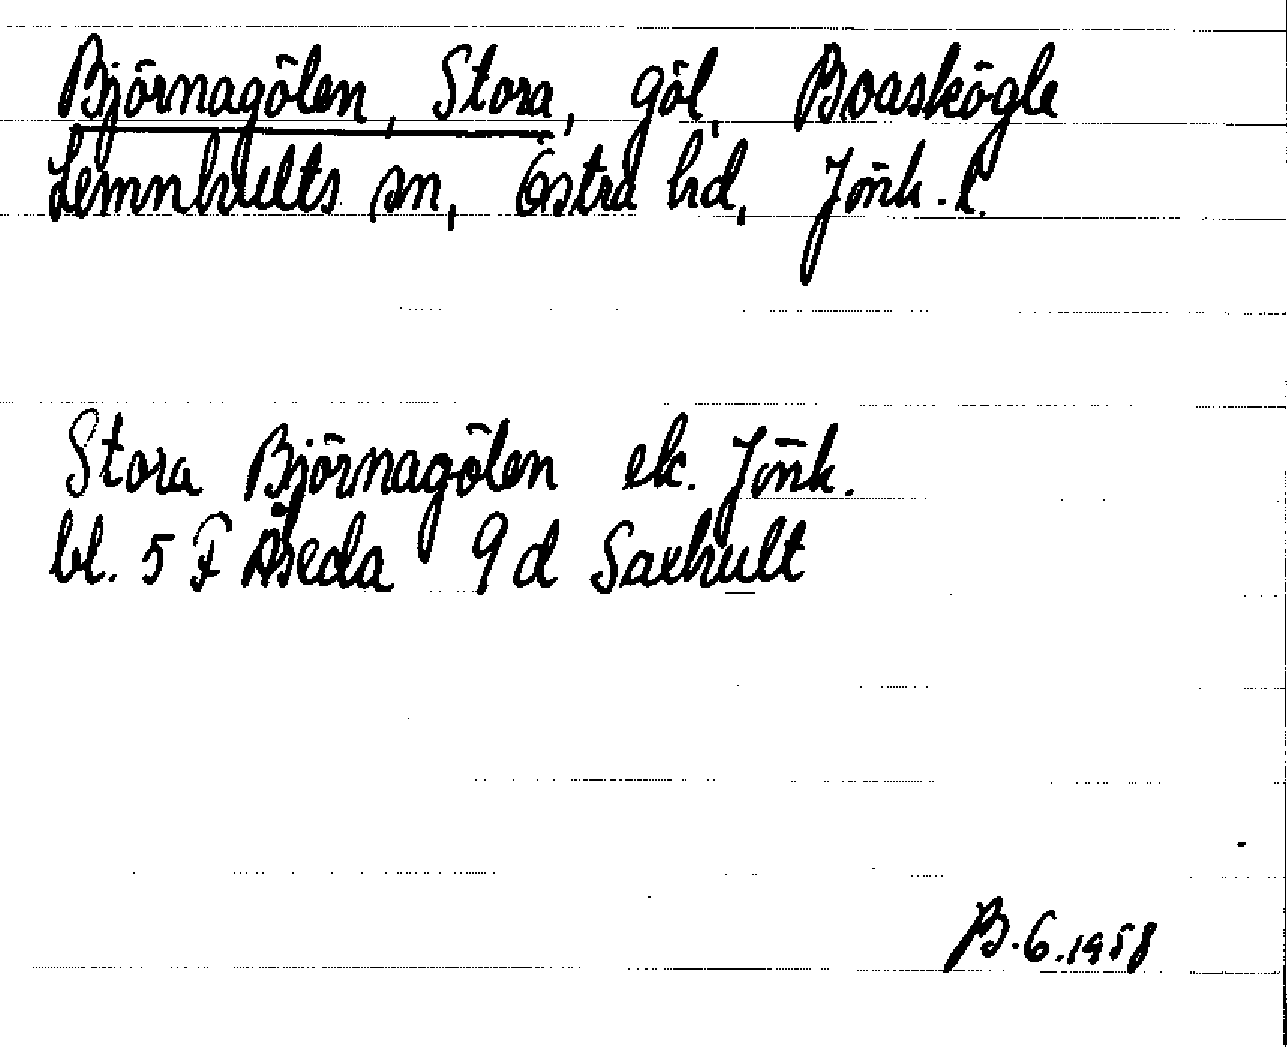 Björnagölen, Stora, göl, Boaskögle
Lemnhults sn, Östra hd, Jönk. l.
Stora Björnagölen ek. Jönk.
bl. 5 F Åseda 9 d Saxhult
B.G. 1958